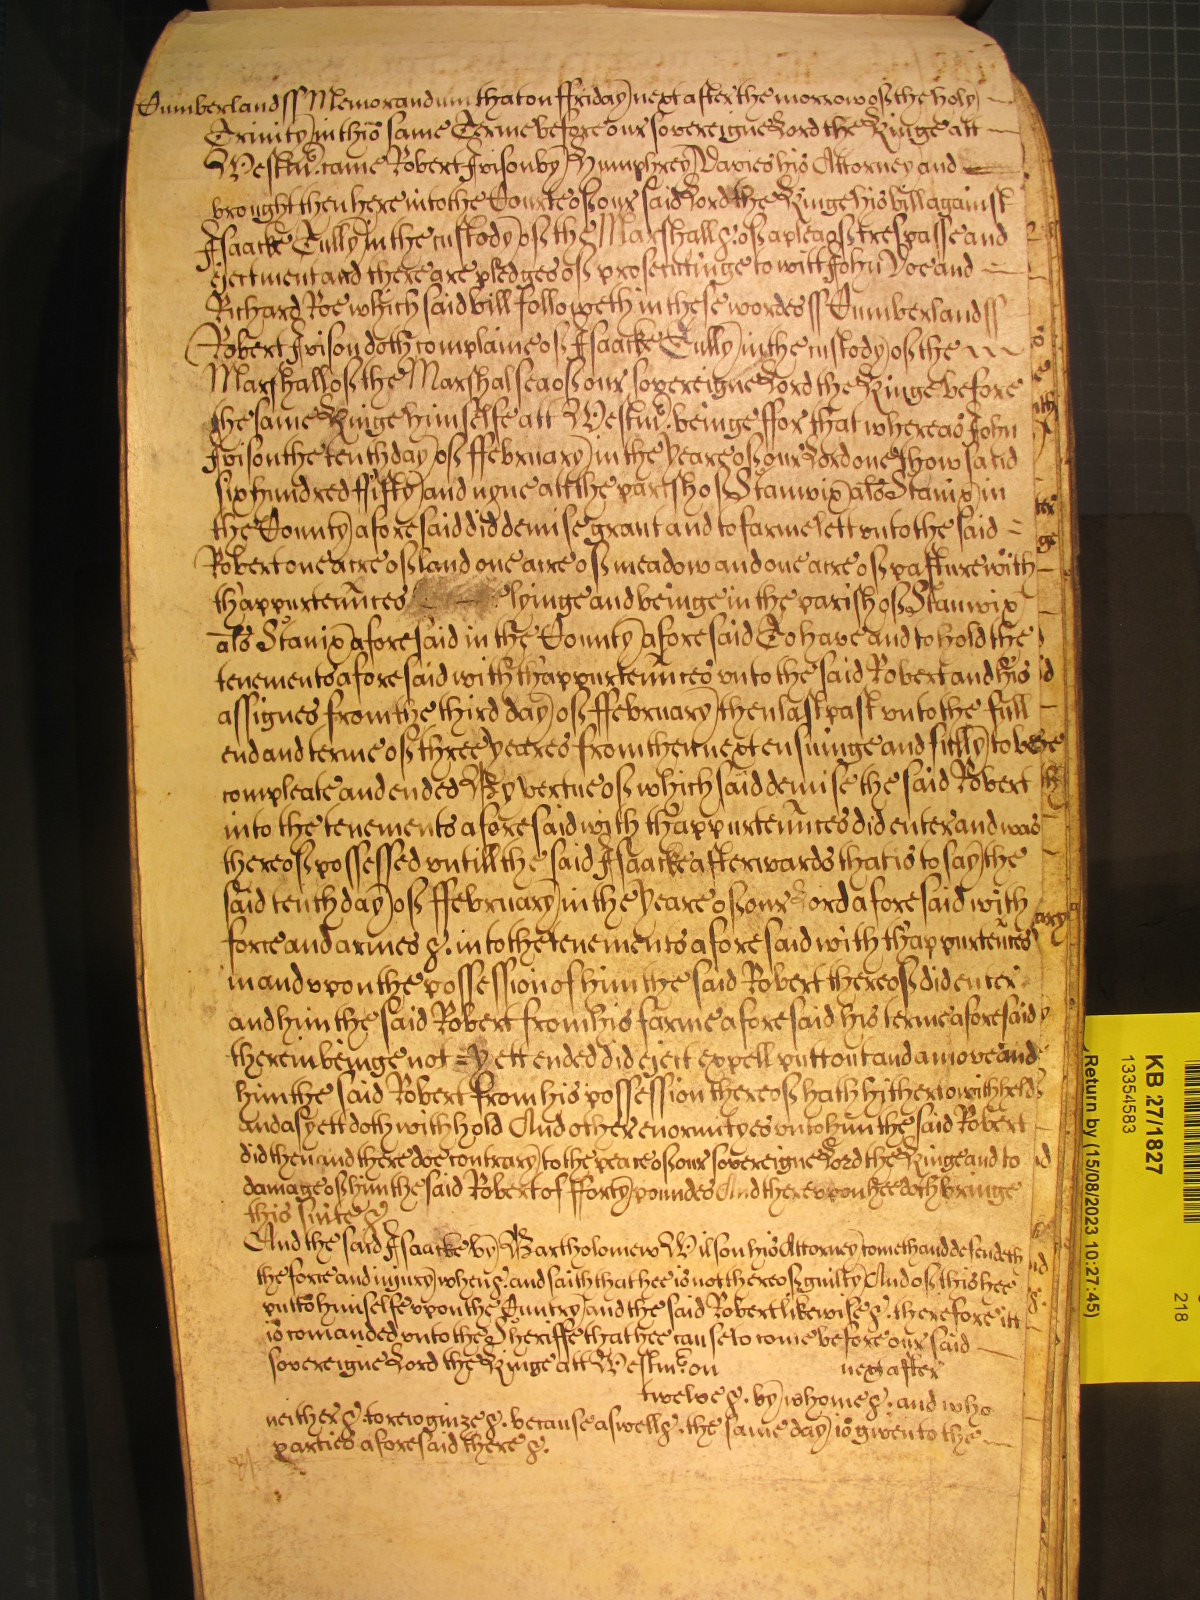 Cumberland ss Memorandum that on ffriday next after the morrow of the holy
Trinity in this same Terme before our sovereigne Lord the Kinge att
Westm̃. came Robert Ivison by Humphrey Davies his Attorney and
brought then here into the Courte of our said Lord the Kinge his bill against
Isaacke Tully in the custody of the Marshall &c. of a plea of trespasse and
ejectment and there are pledges of prosecutinge to witt John Doe and
Richard Roe which said bill followeth in these wordes ss Cumberland ss
Robert Ivison doth complaine of Isaacke Tully in the custody of the
Marshall of the Marshalsea of our sovereigne Lord the Kinge before
the same Kinge himselfe att Westm̃. beinge ffor that whereas John
Ivison the tenth day of ffebruary in the yeare of our Lord one thowsand
six hundred ffifty and nyne att the parish of Stanwix als̃ Stanix in
the County aforesaid did demise grant and to farme lett vnto the said
Robert one acre of land one acre of meadow and one acre of pasture with
th'appurten̄nces lyinge and beinge in the parish of Stanwix
als̃ Stanix aforesaid in the County aforesaid To have and to hold the
tenements aforesaid with th'appurten̄nces vnto the said Robert and his
assignes from the third day of ffebruary then last past vnto the full
end and terme of three yeares from thence next ensuinge and fully to bee
compleate and ended By vertue of which said demise the said Robert
into the tenements aforesaid with th'appurten̄nces did enter and was
thereof possessed vntill the said Isaacke afterwards that is to say the
said tenth day of ffebruary in the yeare of our Lord aforesaid with
force and armes &c. into the tenements aforesaid with th'appurten̄nces
in and vpon the possession of him the said Robert thereof did enter
and him the said Robert from his farme aforesaid his terme aforesaid
therein beinge not yett ended did eject expell putt out and amove and
him the said Robert from his possession thereof hath hitherto withheld
and as yett doth withhold And other enormityes vnto him the said Robert
did then and there doe contrary to the peace of our sovereigne Lord the Kinge and to
damage of him the said Robert of fforty poundes And therevpon hee doth bringe
this suite &c
And the said Isaacke by Bartholomew Wilson his Attorney cometh and defendeth
the force and injury when &c. and saith that hee is not thereof guilty And of this hee
putts himselfe vpon the Cuntry and the said Robert likewise &c. therefore itt
is comanded vnto the Sheriffe that hee cause to come before our said
sovereigne Lord the Kinge att Westm̃. on next after
twelve &c. by whome &c. and who
neither &c. to recognize &c. because aswell &c. the same day is given to the
parties aforesaid there &c.
KB 27/1827
13354583
218
Return by (15/08/2023 10:27:45)